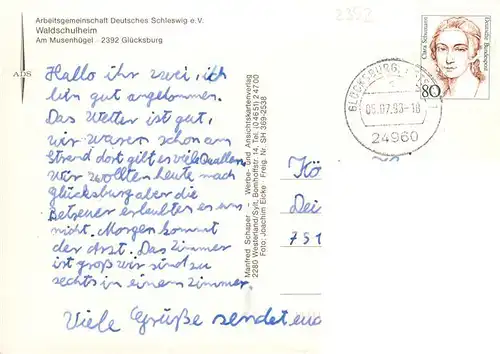 2392
Arbeitsgemeinschaft Deutsches Schleswig e.V.
Waldschulheim
Am Musenhügel · 2392 Glücksburg
ADS
Hallo ihr zwei, ich
bin gut angekommen.
Das Wetter ist gut,
wir waren schon am
Strand dort gibt es viele Quallen,
Wir wollten heute nach
Glücksburg aber die
Betreuer erlaubten es uns
nicht. Morgen kommt
der Arzt. Das Zimmer
ist groß wir sind zu
sechts in einem Zimmer.
Viele Grüße sendet euch
Manfred Schaper – Werbe- und Ansichtskartenverlag
2280 Westerland/Sylt, Bomhoffstr. 14, Tel. (0 46 51) 2 47 00
Foto: Joachim Eicke · Freig. Nr. SH 369-2538
Clara Schumann
Deutsche Bundespost
80
GLÜCKSBURG
05.07.93-18
24960
Kö
Dei
751